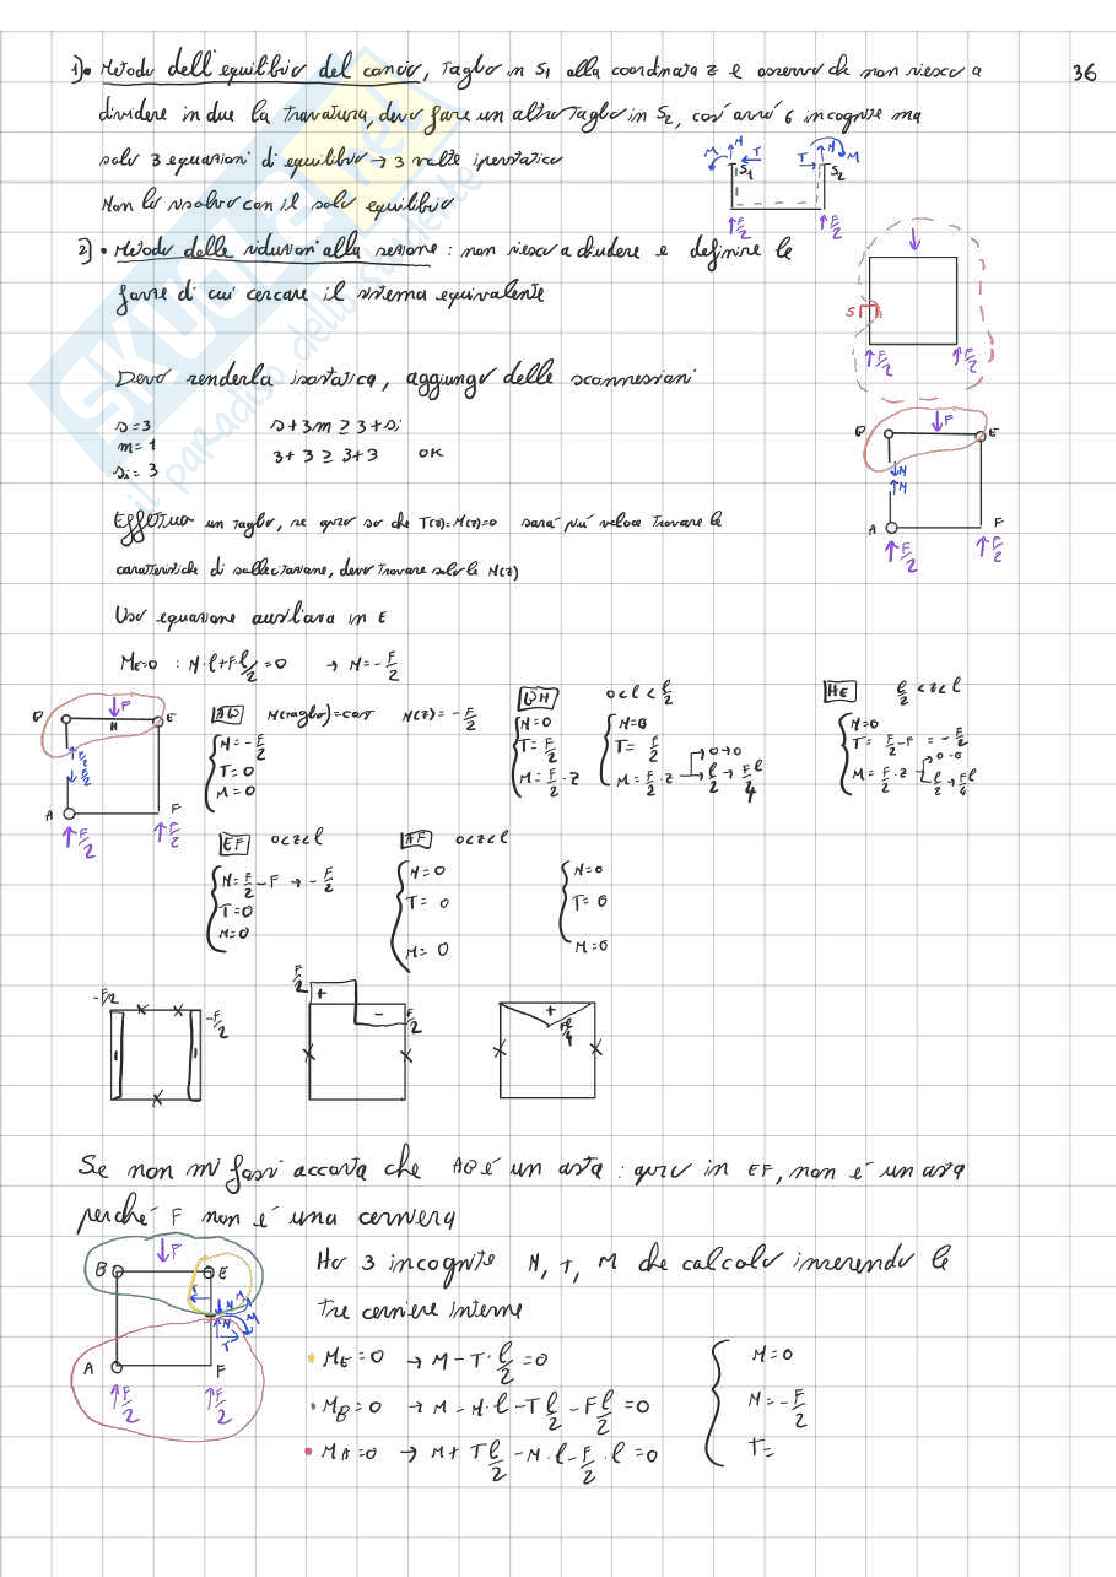 36
1)• Metodo dell'equilibrio del concio, taglio in S1 alla coordinata z e osservo che non riesco a
dividere in due la travatura, devo fare un altro taglio in S2, così avrò 6 incognite ma
solo 3 equazioni di equilibrio → 3 volte iperstatica
Non la risolvo con il solo equilibrio
M N T T N M
S1 S2
F/2 F/2
2)• Metodo delle riduzioni alla sezione : non riesco a chiudere e definire le
forze di cui cercare il sistema equivalente
S
F/2 F/2
Devo renderla isostatica, aggiungo delle sconnessioni
s=3 s+3m ≥ 3+si
m=1 3+3 ≥ 3+3 OK
si=3
F E
N
N
A F
F/2 F/2
Effettuo un taglio, se qui so che T(z)=M(z)=0 sarà più veloce trovare le
caratteristiche di sollecitazione, devo trovare solo la N(z)
Uso equazione ausiliaria in E
ME=0 : N·l+F·l/2=0 → N=-F/2
F E
H
F/2
F/2
A F
F/2 F/2
N(taglio)=cost N(z)=-F/2
N=-F/2
T=0
M=0
0<l<l/2
N=0
T=F/2
M=F/2·z
N=0
T=F/2
M=F/2·z → 0→0
l/2→Fl/4
HE l/2<z<l
N=0
T=F/2-F=-F/2
M=F/2·z
EF 0<z<l
N=F/2-F → -F/2
T=0
M=0
AF 0<z<l
N=0
T=0
M=0
N=0
T=0
M=0
-F/2 -F/2
F/2 + - F/2
+ Fl/4
Se non mi fossi accorta che AB è un asta : giro in EF, non è un asta
perché F non è una cerniera
F
B E
N M
N
T
A F
F/2 F/2
Ho 3 incognite N, T, M che calcolo inserendo le
tre cerniere interne
• ME=0 → M-T·l/2=0
• MB=0 → M-N·l-T l/2-F l/2=0
• MA=0 → M+T l/2-N·l-F/2·l=0
M=0
N=-F/2
T=